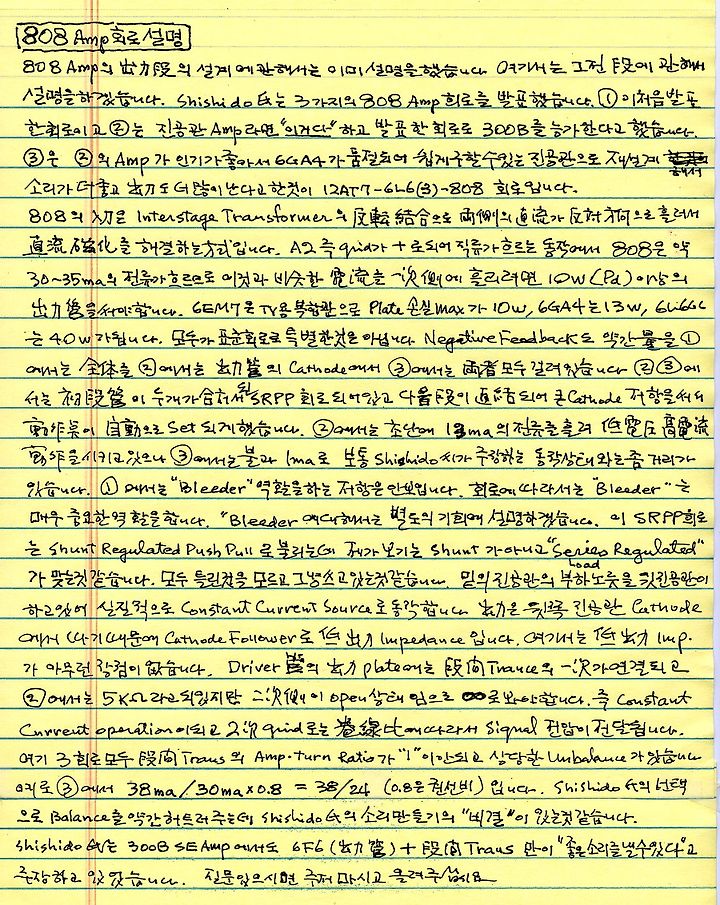 808 Amp 회로 설명
808 Amp의 出力段의 설계에 관해서는 이미 설명을 했습니다. 여기서는 그전 段에 관해서
설명을 하겠습니다. Shishido氏는 3가지의 808 Amp 회로를 발표했습니다. ①이 처음 발표
한 회로이고 ②는 진공관 Amp라면 "이거다" 하고 발표한 회로로 300B를 능가한다고 했습니다.
③은 ②의 Amp가 인기가 좋아서 6GA4가 품절되어 쉽게 구할수 있는 진공관으로 재설계 해서
소리가 더 좋고 出力도 더 많이 난다고 한것이 12AT7-6L6(3)-808 회로입니다.
808의 入力은 Interstage Transformer의 反転結合으로 両側의 直流가 反対方向으로 흘러서
直流磁化를 해결하는 方式입니다. A2 즉 grid가 +로 되어 직류가 흐르는 동작에서 808은 약
30~35ma의 전류가 흐르므로 이것과 비슷한 電流를 一次側에 흘리려면 10w(Pd) 이상의
出力管을 써야합니다. 6EM7은 TV용 복합관으로 Plate 손실 max가 10w, 6GA4는 13w, 6L6GC
는 40w가 됩니다. 모두가 표준회로로 특별한 것은 아닙니다. Negative Feedback도 약간 量을 ①
에서는 全体를 ②에서는 出力管의 Cathode에서 ③에서는 両者 모두 걸려 있습니다. ②③에
서는 初段管이 두개가 합쳐서 된 SRPP 회로 되어있고 다음 段이 直結되어 큰 Cathode 저항을 써서
動作点이 自動으로 Set 되게 했습니다. ②에서는 초단에 13ma의 전류를 흘려 低電圧 高電流
動作을 시키고 있으나 ③에서는 불과 1ma로 보통 Shishido씨가 주장하는 동작상태와는 좀 거리가
있습니다. ①에서는 "Bleeder" 역활을 하는 저항은 안보입니다. 회로에 따라서는 "Bleeder"는
매우 중요한 역활을 합니다. "Bleeder에 대해서는 별도의 기회에 설명하겠습니다. 이 SRPP 회로
는 Shunt Regulated Push Pull로 불리는데 제가 보기는 Shunt가 아니고 "Series Regulated"
가 맞는것 같습니다. 모두 틀린것을 모르고 그냥 쓰고 있는것 같습니다. 밑의 진공관의 부하 Load 노릇을 윗 진공관이
하고 있어 실질적으로 Constant Current Source로 동작합니다. 出力은 윗쪽 진공관 Cathode
에서 따기 때문에 Cathode Follower로 低 出力 Impedance 입니다. 여기서는 低 出力 Imp.
가 아무런 장점이 없습니다. Driver 管의 出力 plate에는 段间 Trance의 一次가 연결되고
②에서는 5KΩ라고 되있지만 二次側이 open 상태 임으로 ∞로 봐야 합니다. 즉 Constant
Current operation이 되고 2次 grid로는 巻線比에 따라서 Signal 전압이 전달됩니다.
여기 3회로 모두 段间 Trans의 Amp·turn Ratio가 "1"이 안되고 상당한 Unbalance가 있습니다
예로 ③에서 38ma/30ma×0.8 = 38/24 (0.8은 권선비) 입니다. Shishido氏의 선택
으로 Balance를 약간 허트러 주는데 Shishido氏의 소리 만들기의 "비결"이 있는것 같습니다.
Shishido氏는 300B SE Amp에서도 6F6(出力管) + 段间 Trans 만이 "좋은 소리를 낼 수 있다"고
주장하고 있었습니다. 질문 있으시면 주저 마시고 올려주십시요